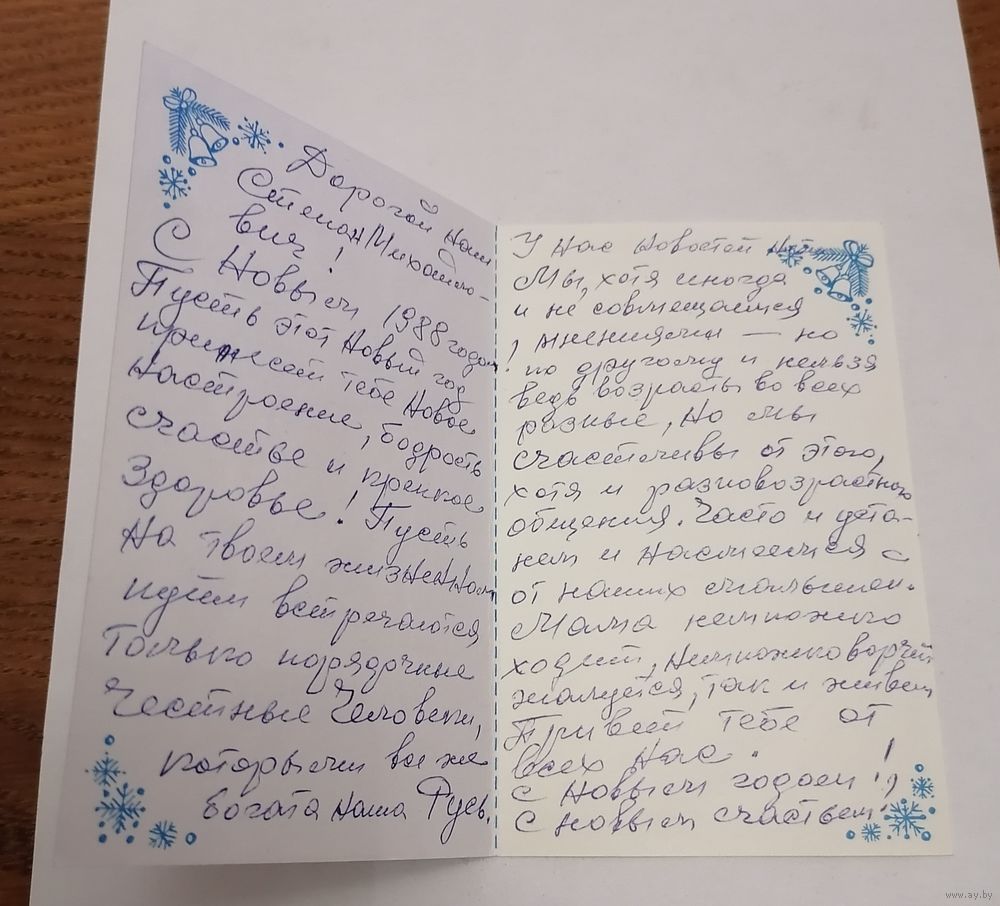 Дорогой наш
Степан Михайло-
вич!
С Новым 1988 годом!
Пусть этот Новый год
принесет тебе новое
настроение, бодрость
счастье и крепкое
здоровье! Пусть
на твоем жизненном
идут встречаются
только порядочные
честные человеки,
которыми все же
богата наша Русь.
У нас новостей нет
Мы, хотя иногда
и не совмещаемся
мнениями — но
по другому и нельзя
ведь возрасты во всех
разные, но мы
счастливы от этого,
хотя и разновозрастного
общения. Часто и уста-
нем и насмеемся с
от наших малышей.
Мама немножко
ходит, немножко ворчит
жалуется, так и живем
Привет тебе от
всех нас.
С Новым годом!
С новым счастьем!
www.ay.by